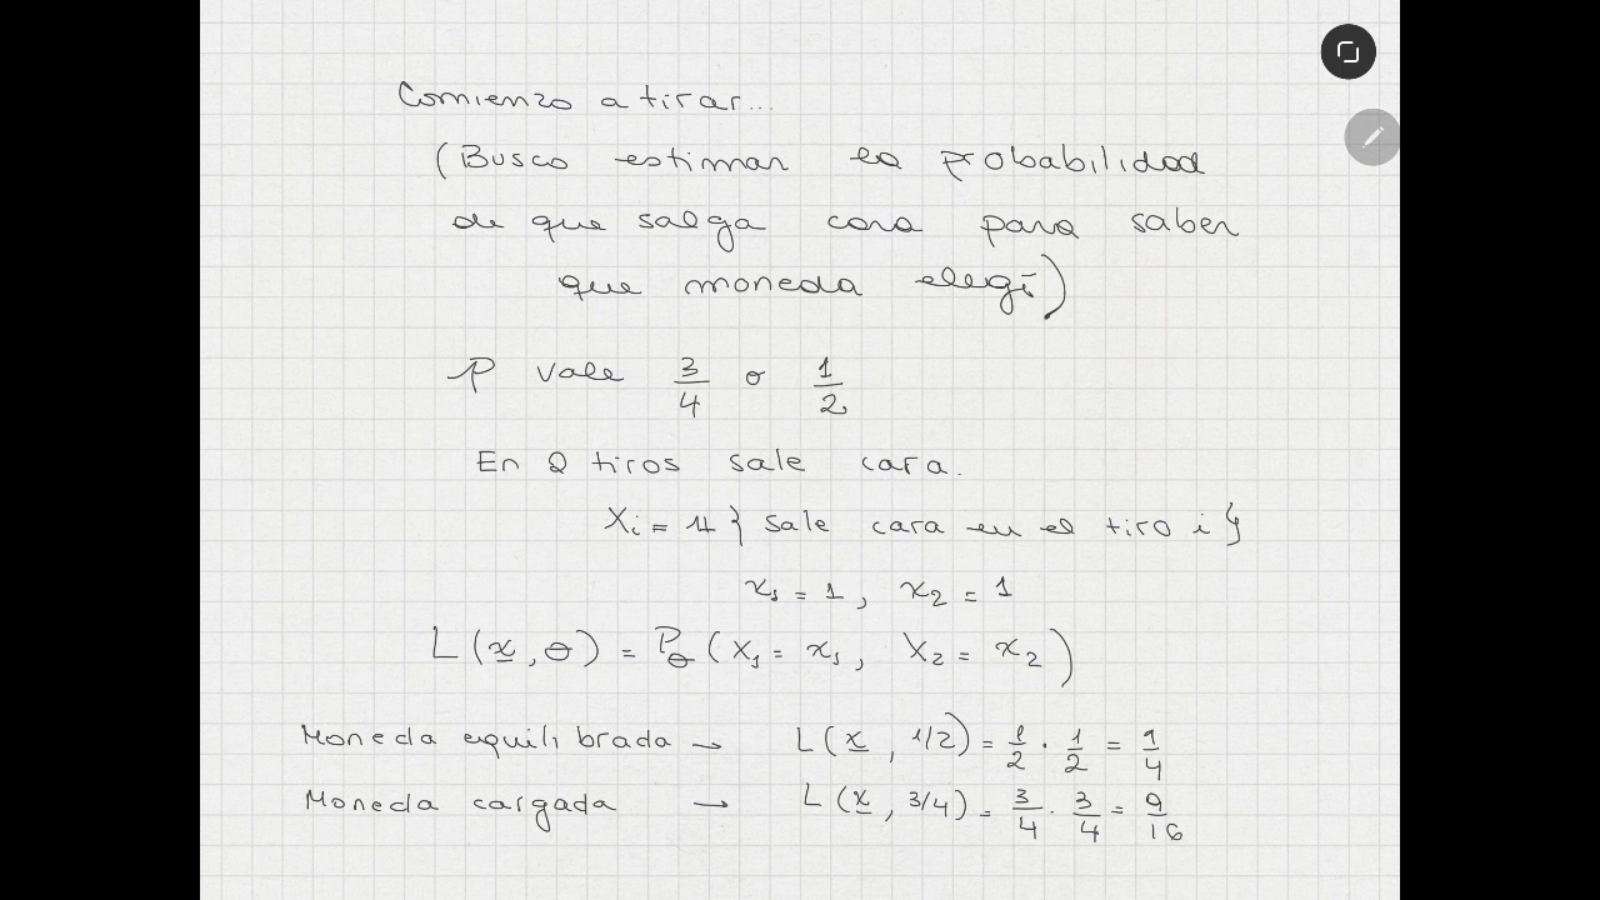 Comienzo a tirar...
(Busco estimar la probabilidad
de que salga cara para saber
que moneda elegí)
p vale 3/4 o 1/2
En 2 tiros sale cara.
Xi = 1{ sale cara en el tiro i }
x1 = 1, x2 = 1
L(x, θ) = Pθ(X1 = x1, X2 = x2)
Moneda equilibrada → L(x, 1/2) = 1/2 · 1/2 = 1/4
Moneda cargada → L(x, 3/4) = 3/4 · 3/4 = 9/16